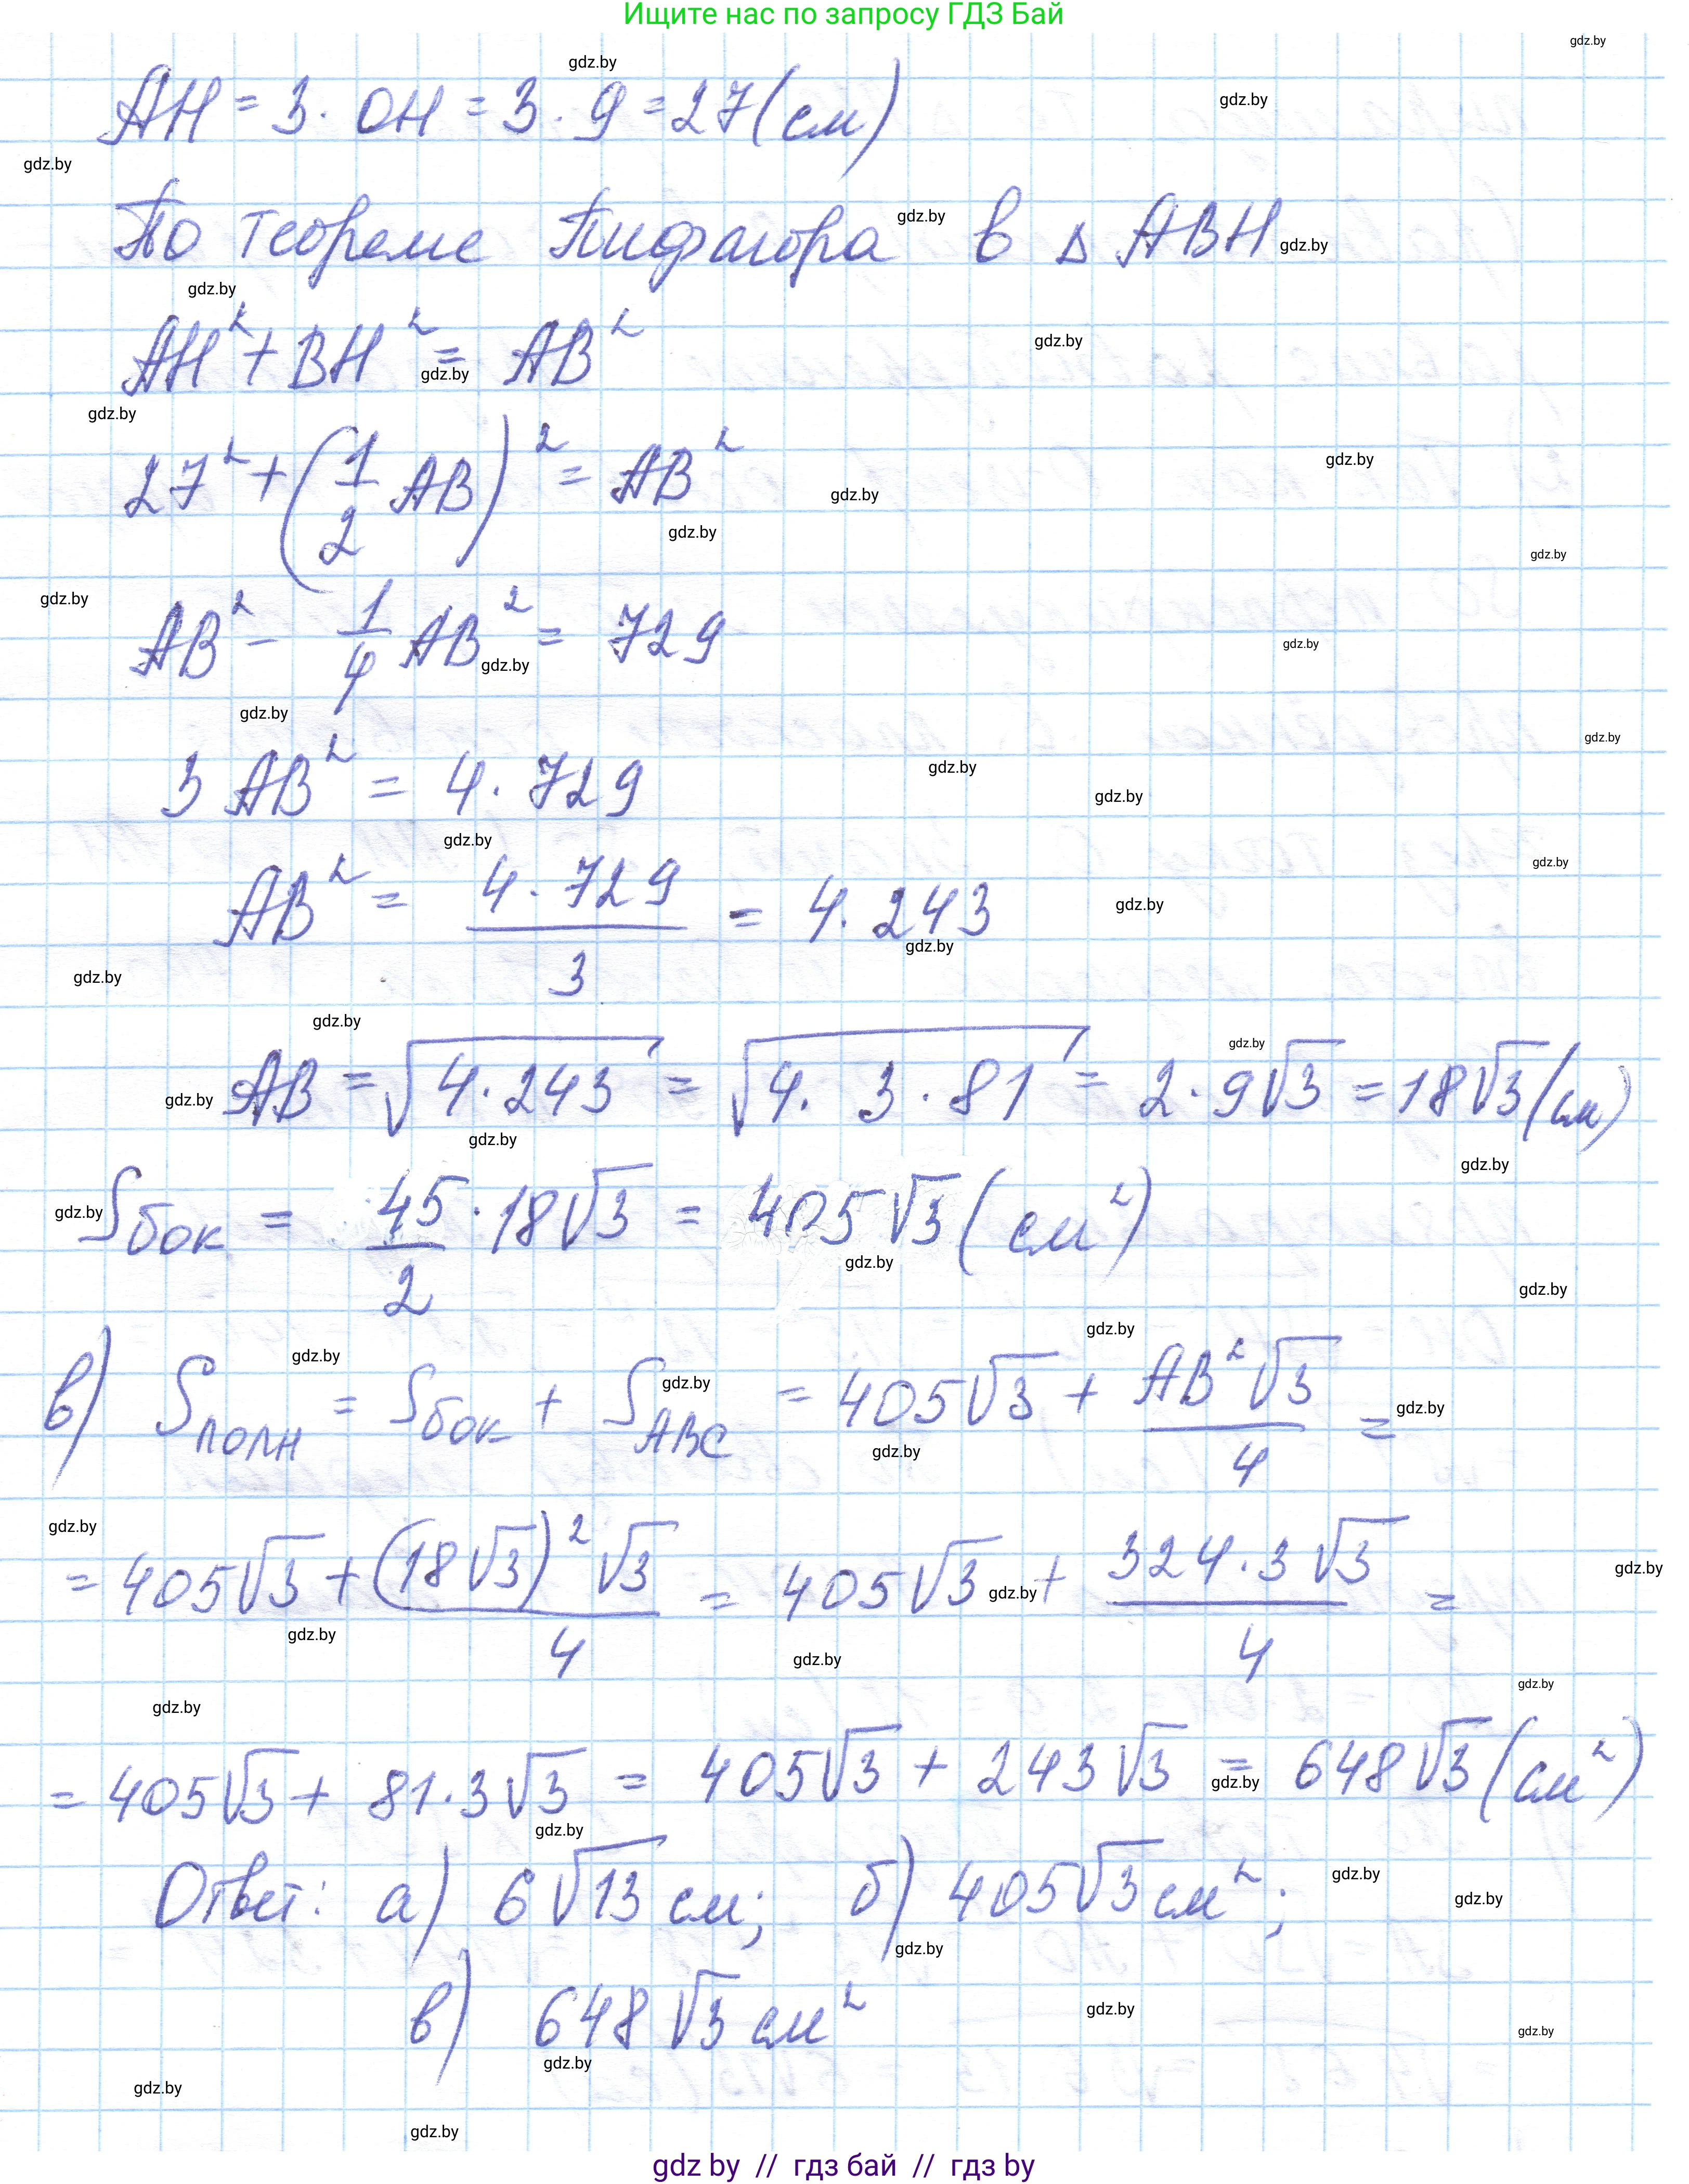 Ищите нас по запросу ГДЗ Бай
AH = 3 · OH = 3 · 9 = 27 (см)
По теореме Пифагора в Δ ABH
AH² + BH² = AB²
27² + (1/2 AB)² = AB²
AB² - 1/4 AB² = 729
3 AB² = 4 · 729
AB² = 4 · 729 / 3 = 4 · 243
AB = √(4 · 243) = √(4 · 3 · 81) = 2 · 9√3 = 18√3 (см)
Sбок = 45/2 · 18√3 = 405√3 (см²)
в) Sполн = Sбок + SABC = 405√3 + AB²√3 / 4 =
= 405√3 + (18√3)²√3 / 4 = 405√3 + 324 · 3√3 / 4 =
= 405√3 + 81 · 3√3 = 405√3 + 243√3 = 648√3 (см²)
Ответ: а) 6√13 см; б) 405√3 см²;
в) 648√3 см²
gdz by // гдз бай // гдз by